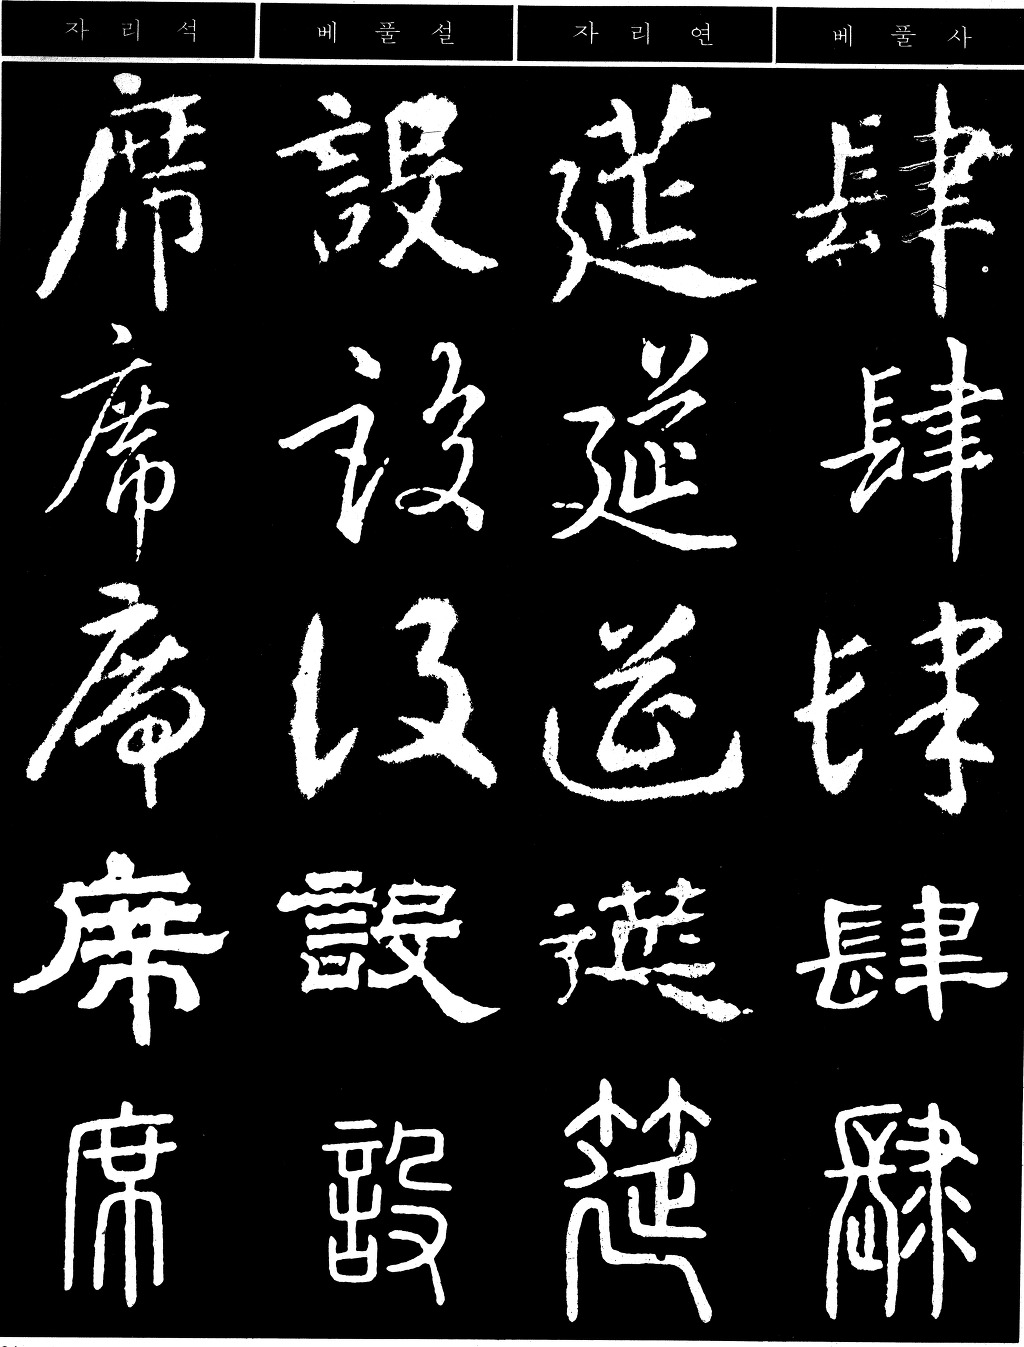 베 풀 사
肆
肆
肆
肆
肆
자 리 연
筵
筵
筵
筵
筵
베 풀 설
設
設
設
設
設
자 리 석
席
席
席
席
席